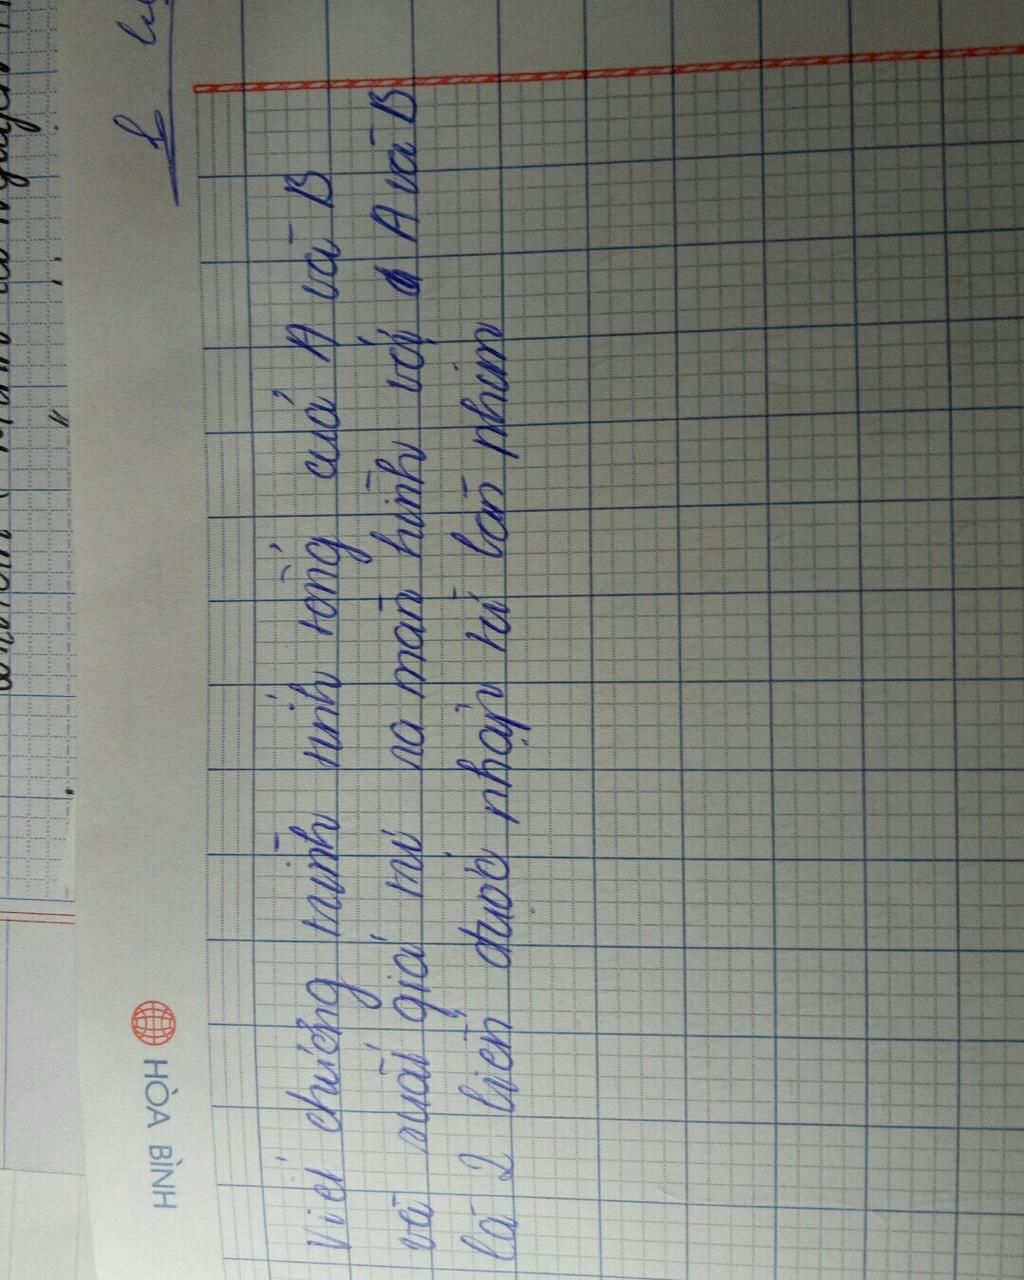 HÒA BÌNH
Viết chương trình tính tổng của A và B
và xuất giá trị ra màn hình với A và B
là 2 biến được nhập từ bàn phím